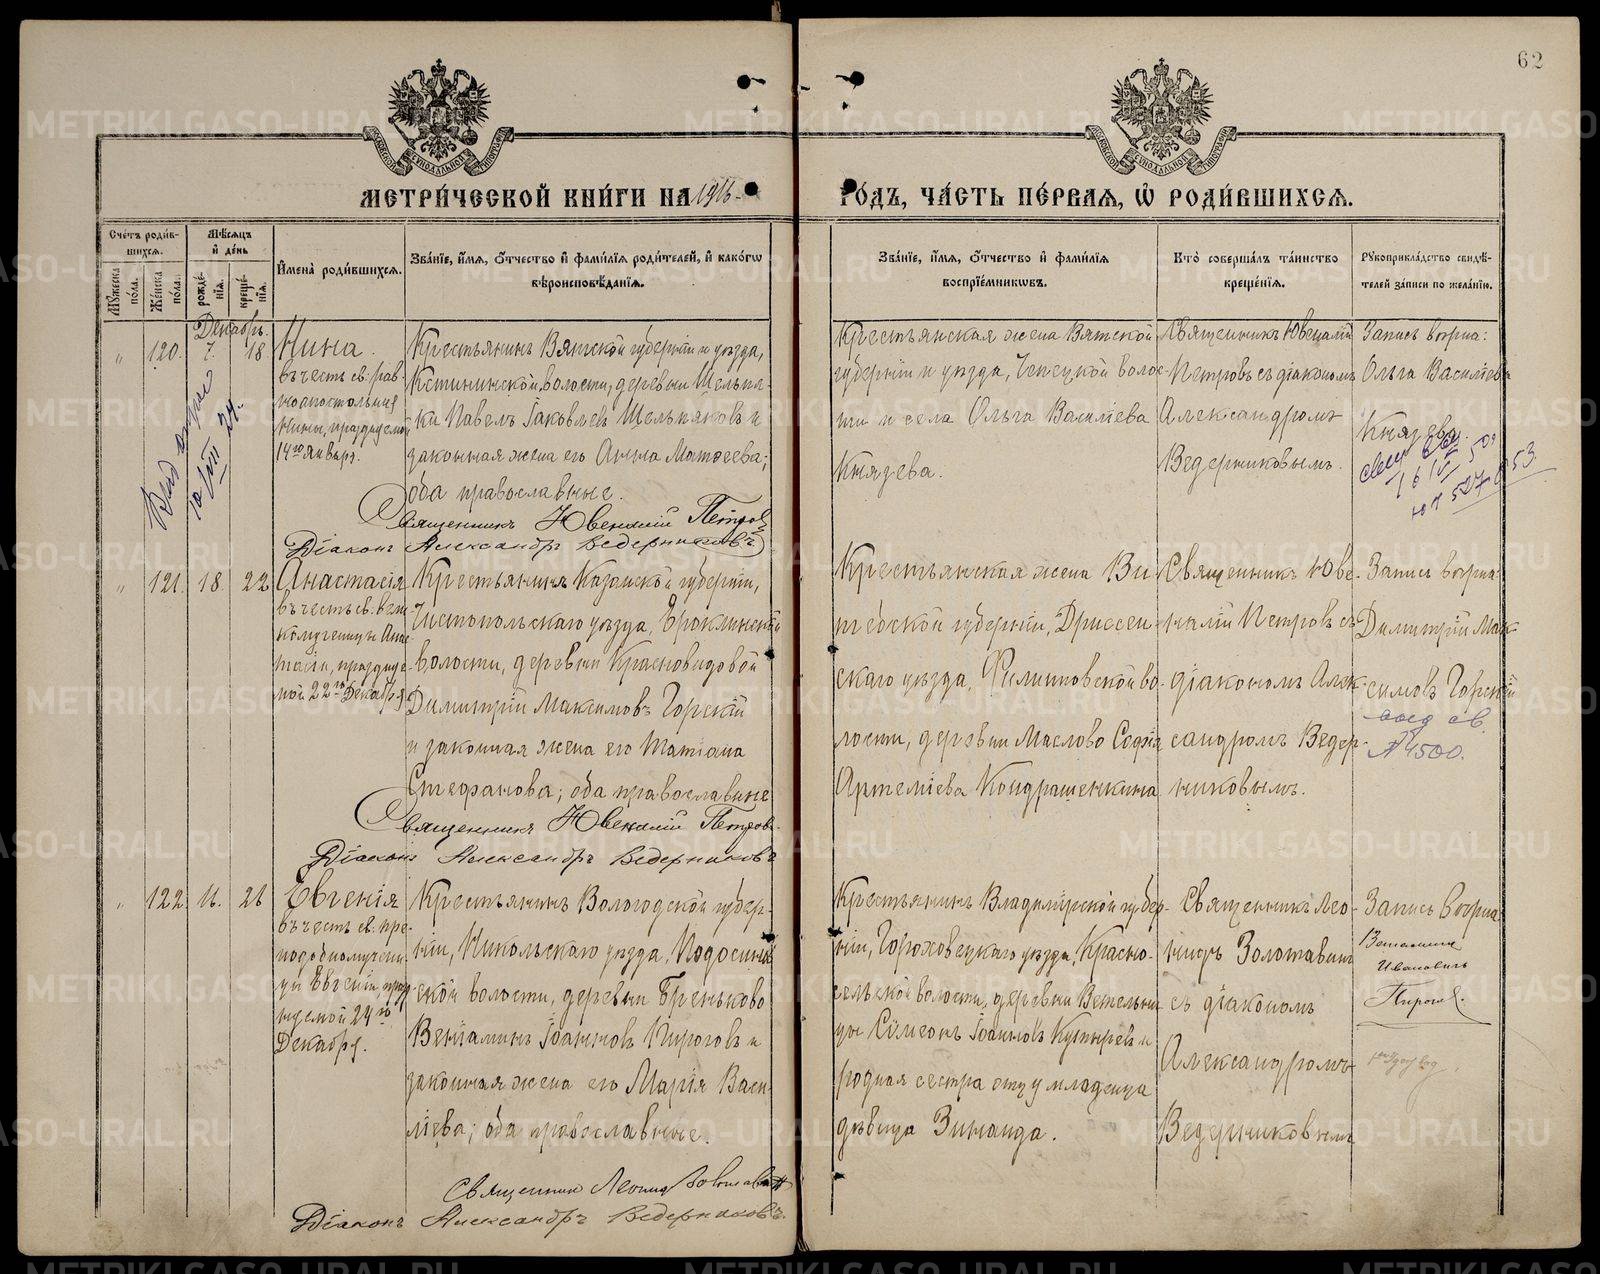 62
МЕТРИЧЕСКОЙ КНИГИ НА 1916 ГОДЪ, ЧАСТЬ ПЕРВАЯ, Ѡ РОДИВШИХСЯ.
Счетъ родив-
шихся.
Мѣсяцъ
и день
Мужеска пола.
Женска пола.
рожде-
нія.
креще-
нія.
Имена родившихся.
Званіе, имя, отчество и фамилія родителей, и какогѡ
вѣроисповѣданія.
Званіе, имя, отчество и фамилія
воспріемникѡвъ.
Кто совершалъ таинство
крещенія.
Рукоприкладство свидѣ-
телей записи по желанію.
Декабрь.
" 120. 7. 18
Нина.
въ честь св. рав-
ноапостольныя
Нины, празднуемой
14го Января.
Крестьянинъ Вятской губерніи и уѣзда,
Кстининской волости, деревни Щельпя-
ки Павелъ Іаковлевъ Щельпяковъ и
законная жена его Анна Матѳеева;
оба православные.
Священникъ Ювеналій Петровъ
Діаконъ Александръ Ведерниковъ
Крестьянская жена Вятской
губерніи и уѣзда, Чепецкой волос-
ти и села Ольга Василіева
Князева.
Священникъ Ювеналій
Петровъ съ діакономъ
Александромъ
Ведерниковымъ.
Запись вѣрна:
Ольга Василіева
Князева.
" 121. 18. 22
Анастасія
въ честь св. вели-
комученицы Анас-
тасіи, празднуе-
мой 22го Декабря
Крестьянинъ Казанской губерніи,
Чистопольскаго уѣзда, Ерыклинской
волости, деревни Красновидовой
Димитрій Максимовъ Горскій
и законная жена его Татіана
Стефанова; оба православные
Священникъ Ювеналій Петровъ
Діаконъ Александръ Ведерниковъ
Крестьянская жена Ви-
тебской губерніи, Дриссен-
скаго уѣзда, Филиповской во-
лости, деревни Маслово Софія
Артеміева Кондрашенкина
Священникъ Юве-
налій Петровъ съ
діакономъ Алек-
сандромъ Ведер-
никовымъ.
Запись вѣрна
Димитрій Мак-
симовъ Горскій
А 4500.
" 122. 11. 26
Евгенія
въ честь св. пре-
подобномучени-
цы Евгеніи, праз-
нуемой 24го
Декабря.
Крестьянинъ Вологодской губер-
ніи, Никольскаго уѣзда, Подосинов-
ской волости, деревни Бреньково
Веніаминъ Іоанновъ Пироговъ и
законная жена его Марія Васи-
ліева; оба православные.
Священникъ Леонидъ Золотавинъ
Діаконъ Александръ Ведерниковъ.
Крестьянинъ Владимірской губер-
ніи, Гороховецкаго уѣзда, Красно-
сельской волости, деревни Ветельни-
цы Сѵмеонъ Іоанновъ Купыревъ и
родная сестра отцу младенца
дѣвица Зинаида.
Священникъ Лео-
нидъ Золотавинъ
съ діакономъ
Александромъ
Ведерниковымъ
Запись вѣрна
Веніаминъ
Ивановичъ
Пирогов.
METRIKI.GASO-URAL.RU